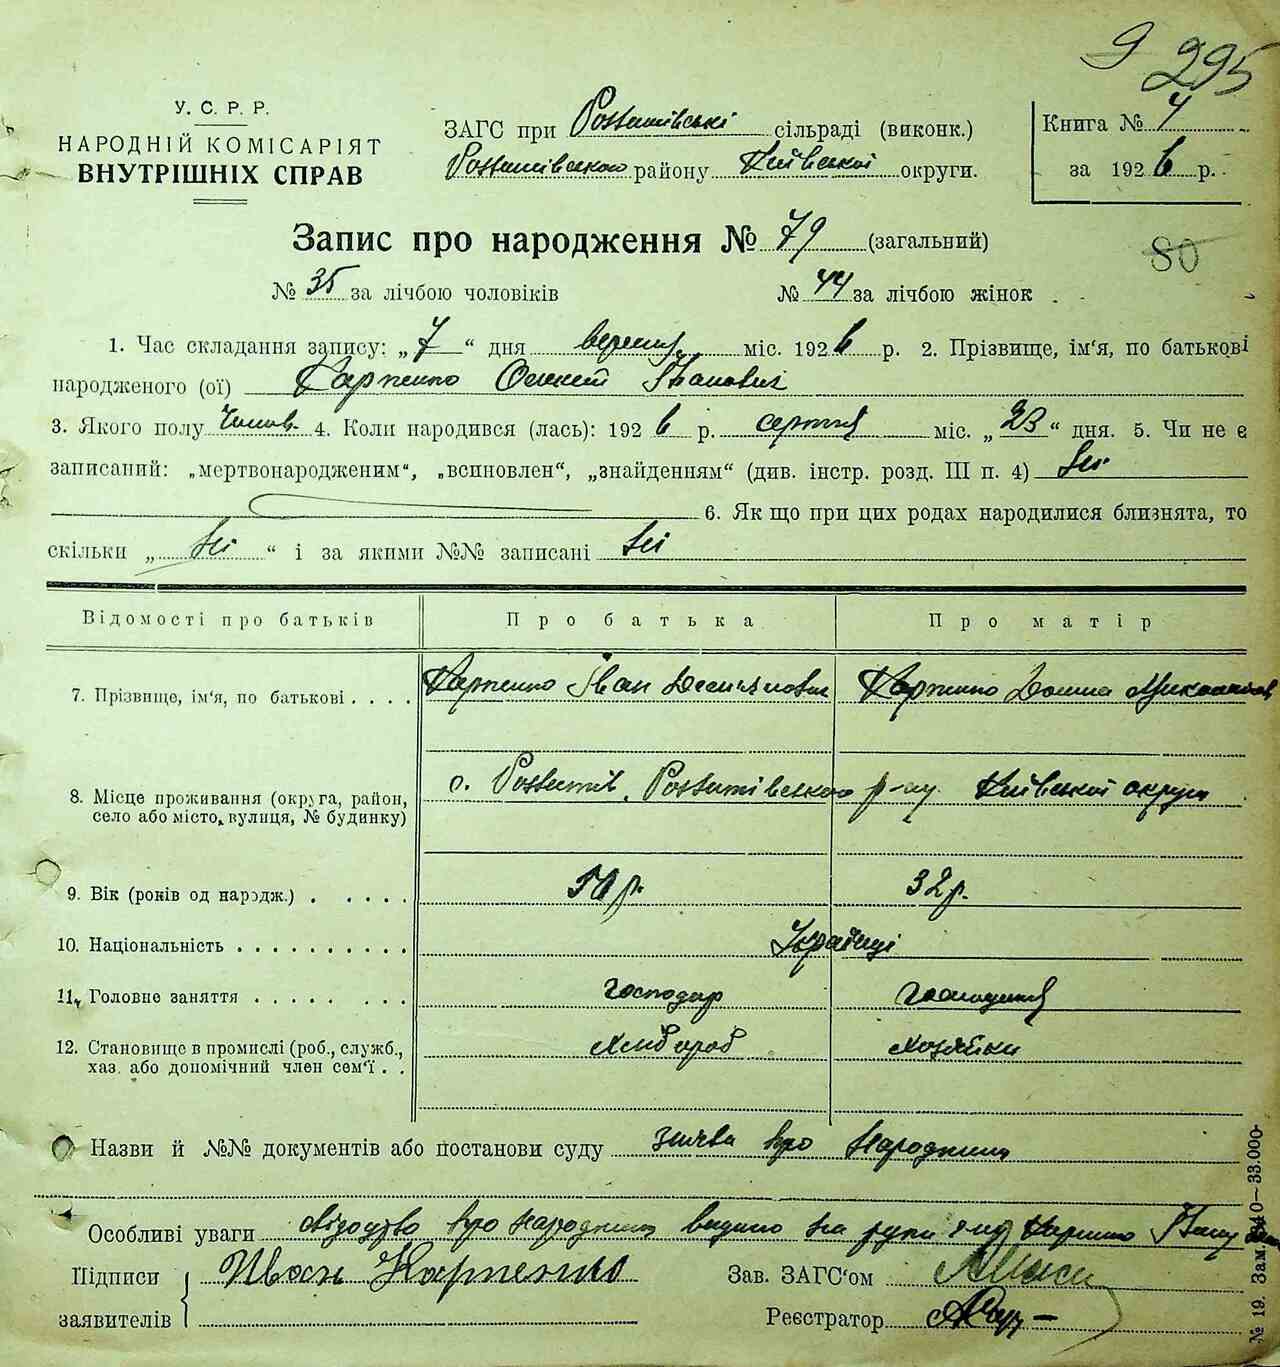 9 295
У. С. Р. Р.
НАРОДНІЙ КОМІСАРІЯТ
ВНУТРІШНІХ СПРАВ
ЗАГС при сільраді (виконк.)
району Київської округи.
Книга № 4
за 1926 р.
Запис про народження № 79 (загальний)
80
№ 35 за лічбою чоловіків № 44 за лічбою жінок
1. Час складання запису: „7“ дня вересня міс. 1926 р. 2. Прізвище, ім'я, по батькові
народженого (ої) Карпенко Іванович
3. Якого полу чолов. 4. Коли народився (лась): 1926 р. серпня міс. „23“ дня. 5. Чи не є
записаний: „мертвонародженим“, „всиновлен“, „знайденням“ (див. інстр. розд. III п. 4) Ні
6. Як що при цих родах народилися близнята, то
скільки „Ні“ і за якими №№ записані Ні
Відомості про батьків Про батька Про матір
7. Прізвище, ім'я, по батькові . . . . Карпенко Іван Карпенко
8. Місце проживання (округа, район, село або місто, вулиця, № будинку) с. р-ну Київської округи
9. Вік (років од народж.) . . . . . 50 р. 32 р.
10. Національність . . . . . . . . . . Українці
11. Головне заняття . . . . . . . . господар господиня
12. Становище в промислі (роб., служб., хаз. або допомічний член сем'ї . . Хлібороб хозяйка
Назви й №№ документів або постанови суду заява про народження
Особливі уваги про народження видано на руки Карпенко Івану
Підписи заявителів Иван Карпенко
Зав. ЗАГС'ом
Реєстратор
№ 19. Зам. 33.000